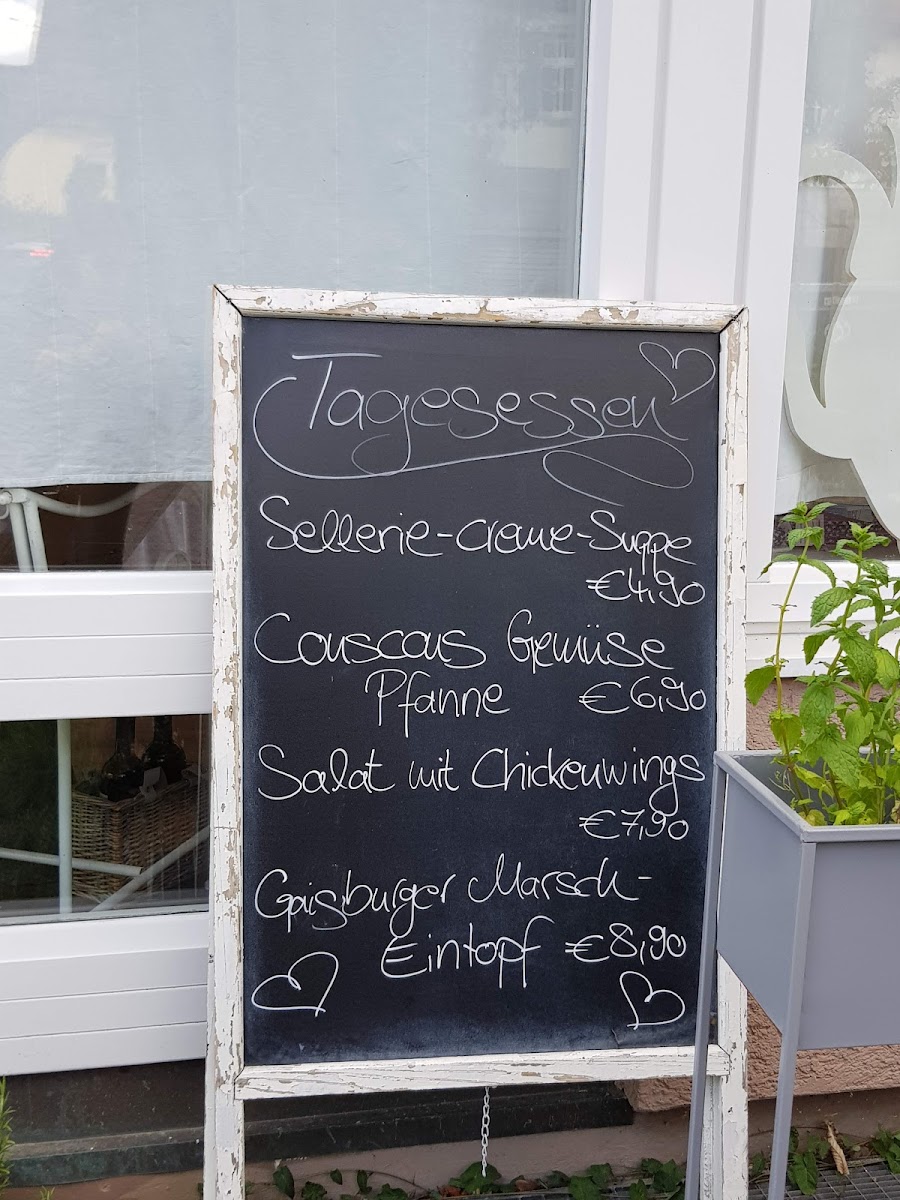 Tagesessen
Sellerie-creme-Suppe
€4,90
Couscous Gemüse
Pfanne €6,90
Salat mit Chickenwings
€7,90
Gaisburger Marsch-
Eintopf €8,90